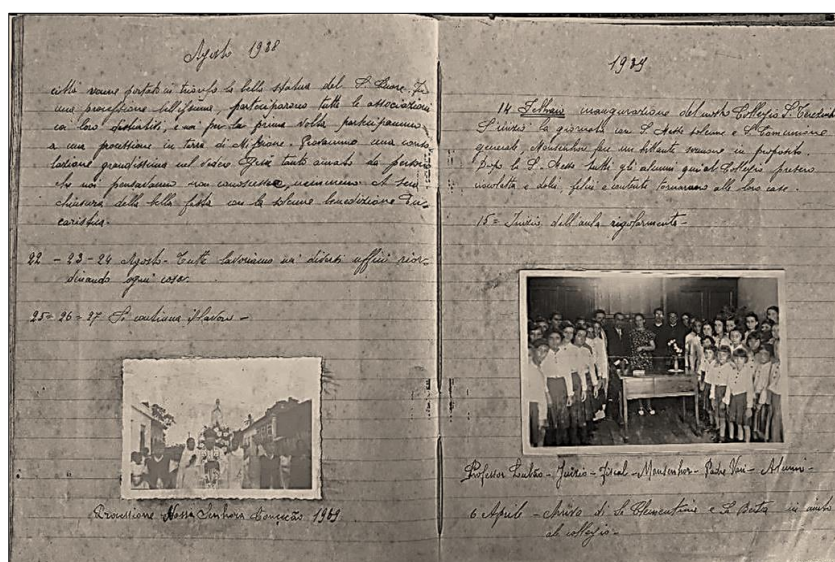 Agosto 1938
città venne portata in trionfo la bella statua del S. Cuore. In
una processione bellissima, parteciparono tutte le associazioni
coi loro distintivi, e noi per la prima volta partecipammo
a una processione in Terra di Missione. Provammo una conso-
lazione grandissima nel vedere Gesù tanto amato da persone
che noi pensavamo non conoscesse, nemmeno di
chiusura della bella festa con la solenne benedizione Eu-
caristica.
22 - 23 - 24 Agosto - Tutte lavoriamo nei diversi uffici rior-
dinando ogni cosa.
25 = 26 = 27 Si continua il lavoro -
Processione Nossa Senhora Conceição 1939
1939
14 Febbraio inaugurazione del nostro Collegio S. Teresinha
S'inizio la giornata con S. Messa solenne e S. Comunione
generale, Monsenhor fece un brillante sermone in proposito.
Dopo la S. Messa tutti gli alunni qui al Collegio presero
e dolci, felici e contenti tornarono alle loro case.
15 = Inizio dell'aula regolarmente -
Professor - Juizio - Fiscal - Monsenhor - Padre - Alunni -
6 Aprile - Arrivo di Sr Clementina e Sr Berta in aiuto
al collegio -